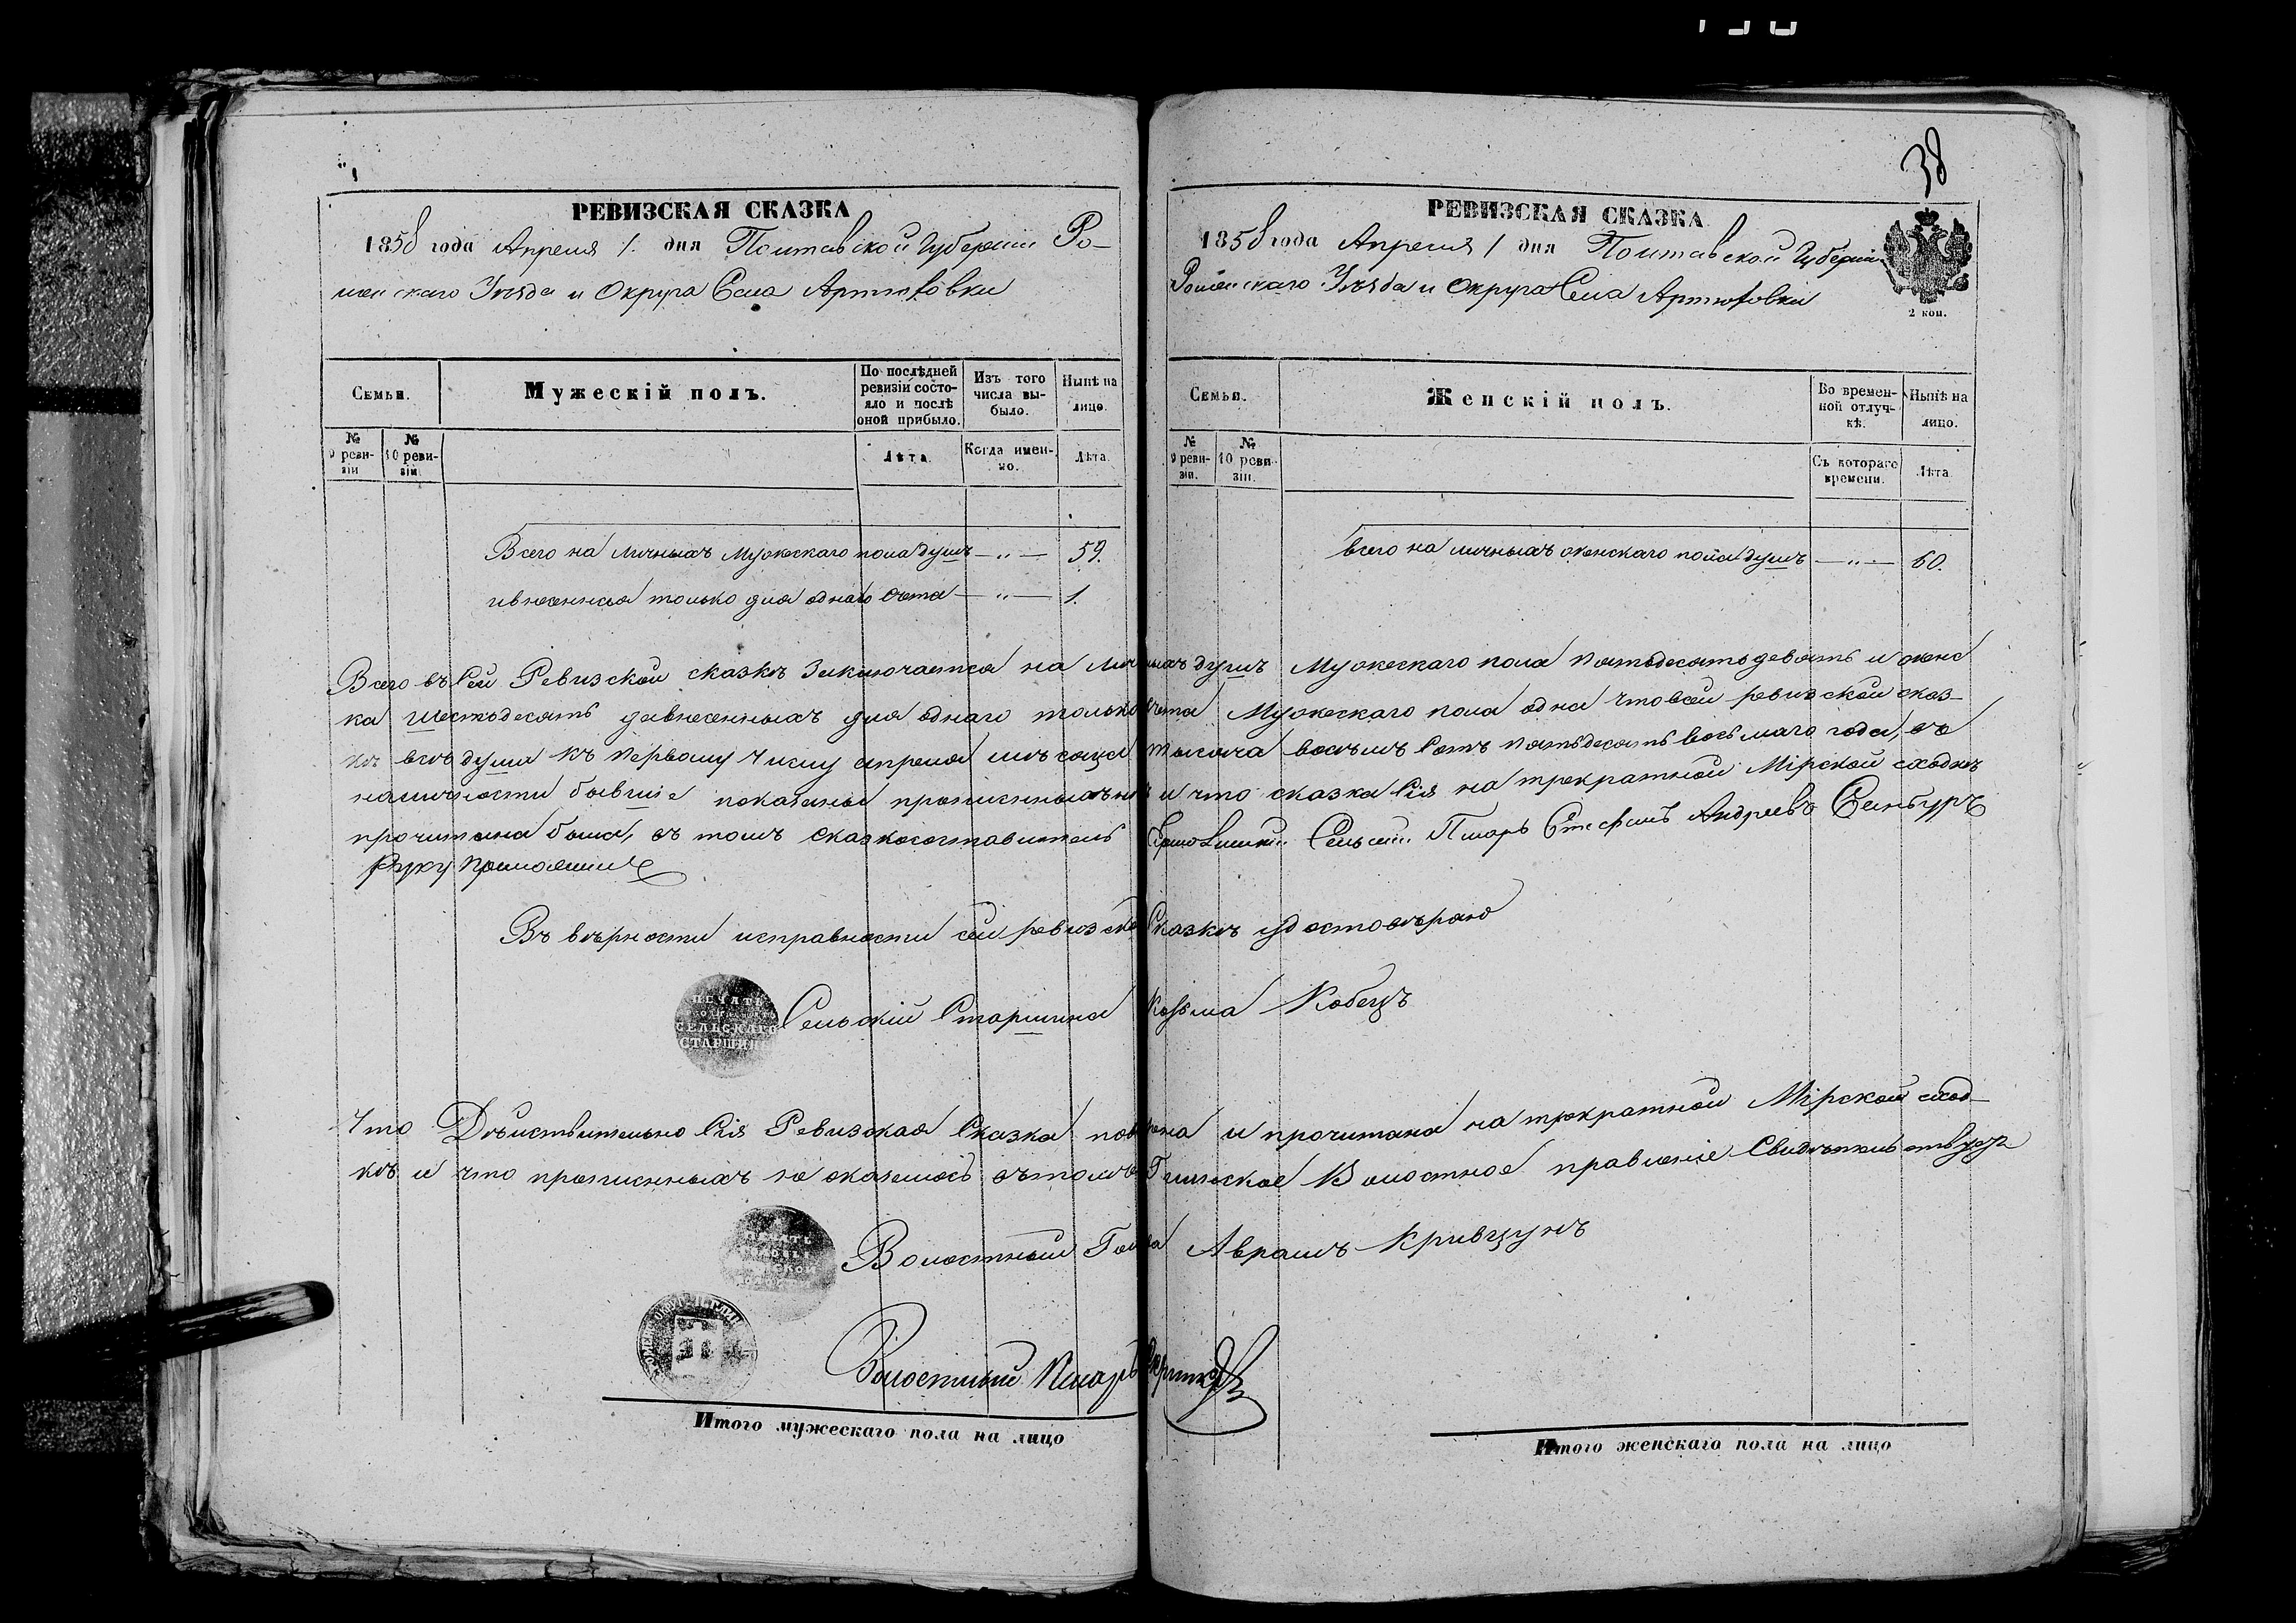 38
РЕВИЗСКАЯ СКАЗКА
1858 года Апреля 1. дня Полтавской Губернии Ро-
менскаго Уезда и Округа Села Артюховки
Семьи.
Мужескій полъ.
По послѣдней ревизіи состо-
яло и послѣ оной прибыло.
Изъ того числа вы-
было.
Нынѣ на лицо.
№ 9 реви-
зіи
№ 10 реви-
зіи.
Лѣта.
Когда имен-
но.
Лѣта.
Всего на личныхъ Мужескаго пола душъ — „ — 59.
внесенныя только для однаго счета — „ — 1.
РЕВИЗСКАЯ СКАЗКА
1858 года Апреля 1 дня Полтавской Губерніи
Роменскаго Уѣзда и Округа Села Артюховки
2 коп.
Семьи.
Женскій полъ.
Во времен-
ной отлуч-
кѣ.
Нынѣ на лицо.
№ 9 реви-
зіи.
№ 10 реви-
зіи.
Съ котораго времени.
Лѣта.
Всего на личныхъ женскаго пола душъ — „ — 60.
Всего въ сей Ревизской сказкѣ Заключается на личныхъ душъ Мужескаго пола пятьдесятъ девять и женс
ка шестьдесятъ внесенныхъ для однаго только счета Мужескаго пола одна что всей ревизской сказ-
кѣ всѣ души къ первому числу апреля мѣсяца тысяча восемь сотъ пятьдесятъ восьмаго года, въ
наличности бывшіе показаны прописныхъ нѣтъ и что сказка сія на трекратной Мірской сходкѣ
прочитана была, въ томъ сказкосоставитель Сельскій Писарь Стефанъ Андреевъ
Руку приложилъ
Въ вѣрности исправности сей ревизской Сказкѣ удостовѣраю
ПЕЧАТЬ СЕЛЬСКАГО СТАРШИНЫ
Сельскій Старшина Козьма Кобецъ
Что Дѣйствительно сія Ревизская Сказка повѣрена и прочитана на трекратной Мірской сход-
кѣ и что прописныхъ не оказалось въ томъ Волостное правленіе Свидѣтельствуетъ
Волостный Голова Аврамъ Кривцунъ
Волостный Писарь
Итого мужескаго пола на лицо
Итого женскаго пола на лицо